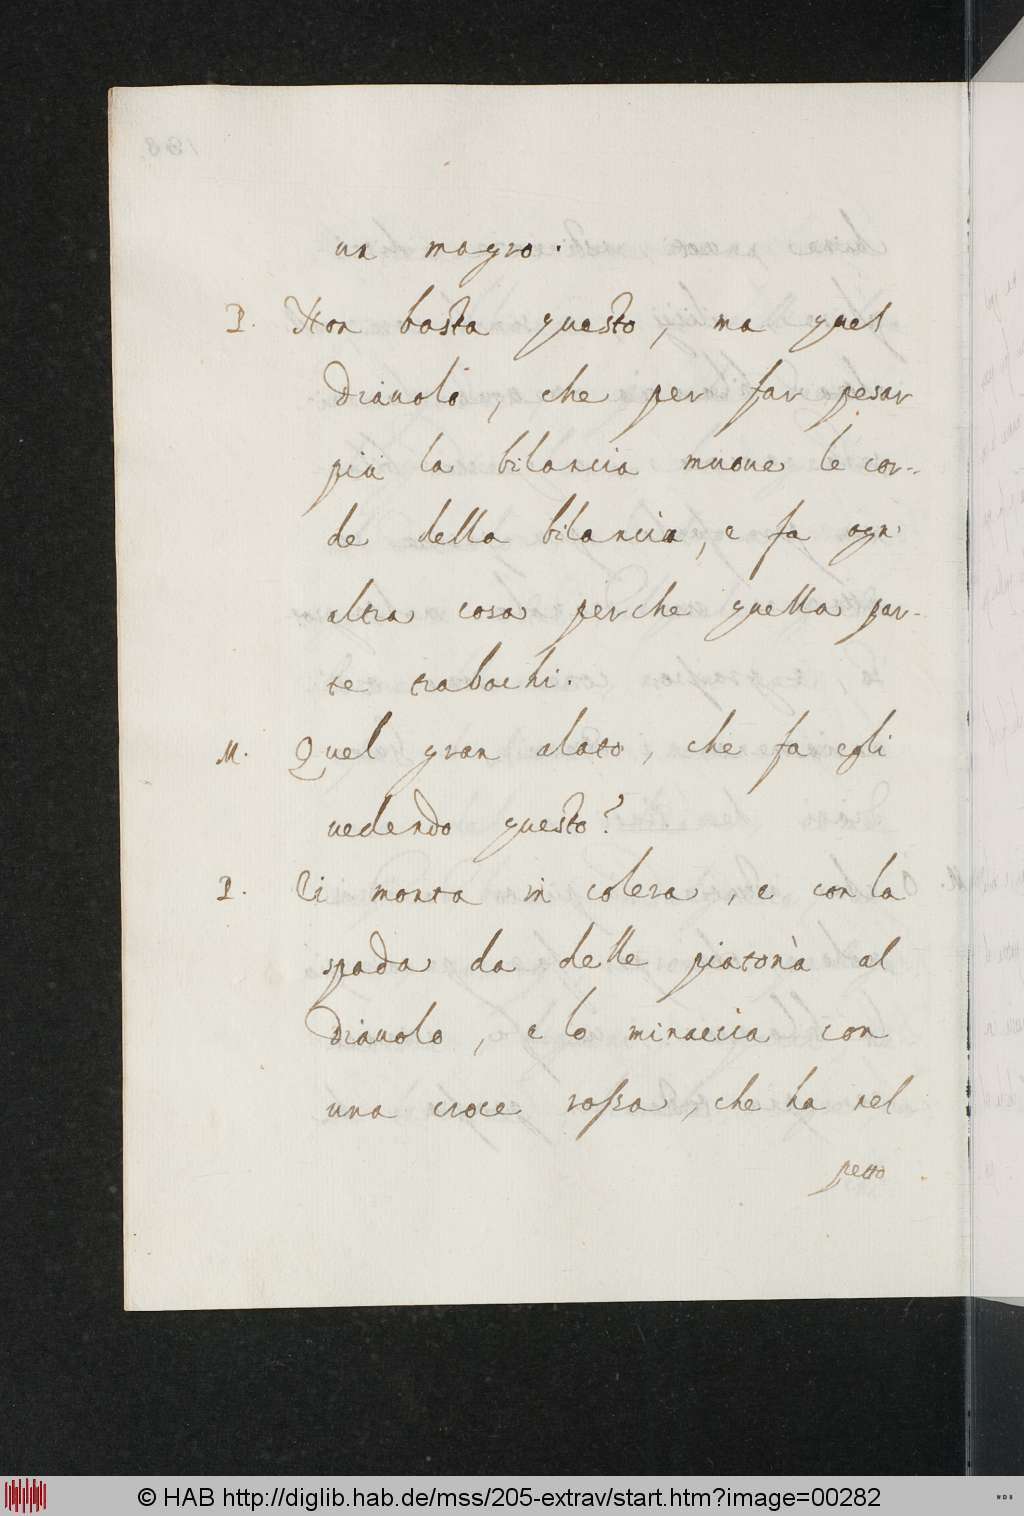 un magro.
P. Non basta questo, ma quel
diauolo, che per far pesar
più la bilancia muoue le cor-
de della bilancia, e fa ogn'
altra cosa perche quella par-
te trabochi.
M. Quel gran alato, che fa egli
uedendo questo?
P. Si monta in colera, e con la
spada da delle piatonà al
diauolo, e lo minaccia con
una croce rossa, che ha nel
petto
© HAB http://diglib.hab.de/mss/205-extrav/start.htm?image=00282